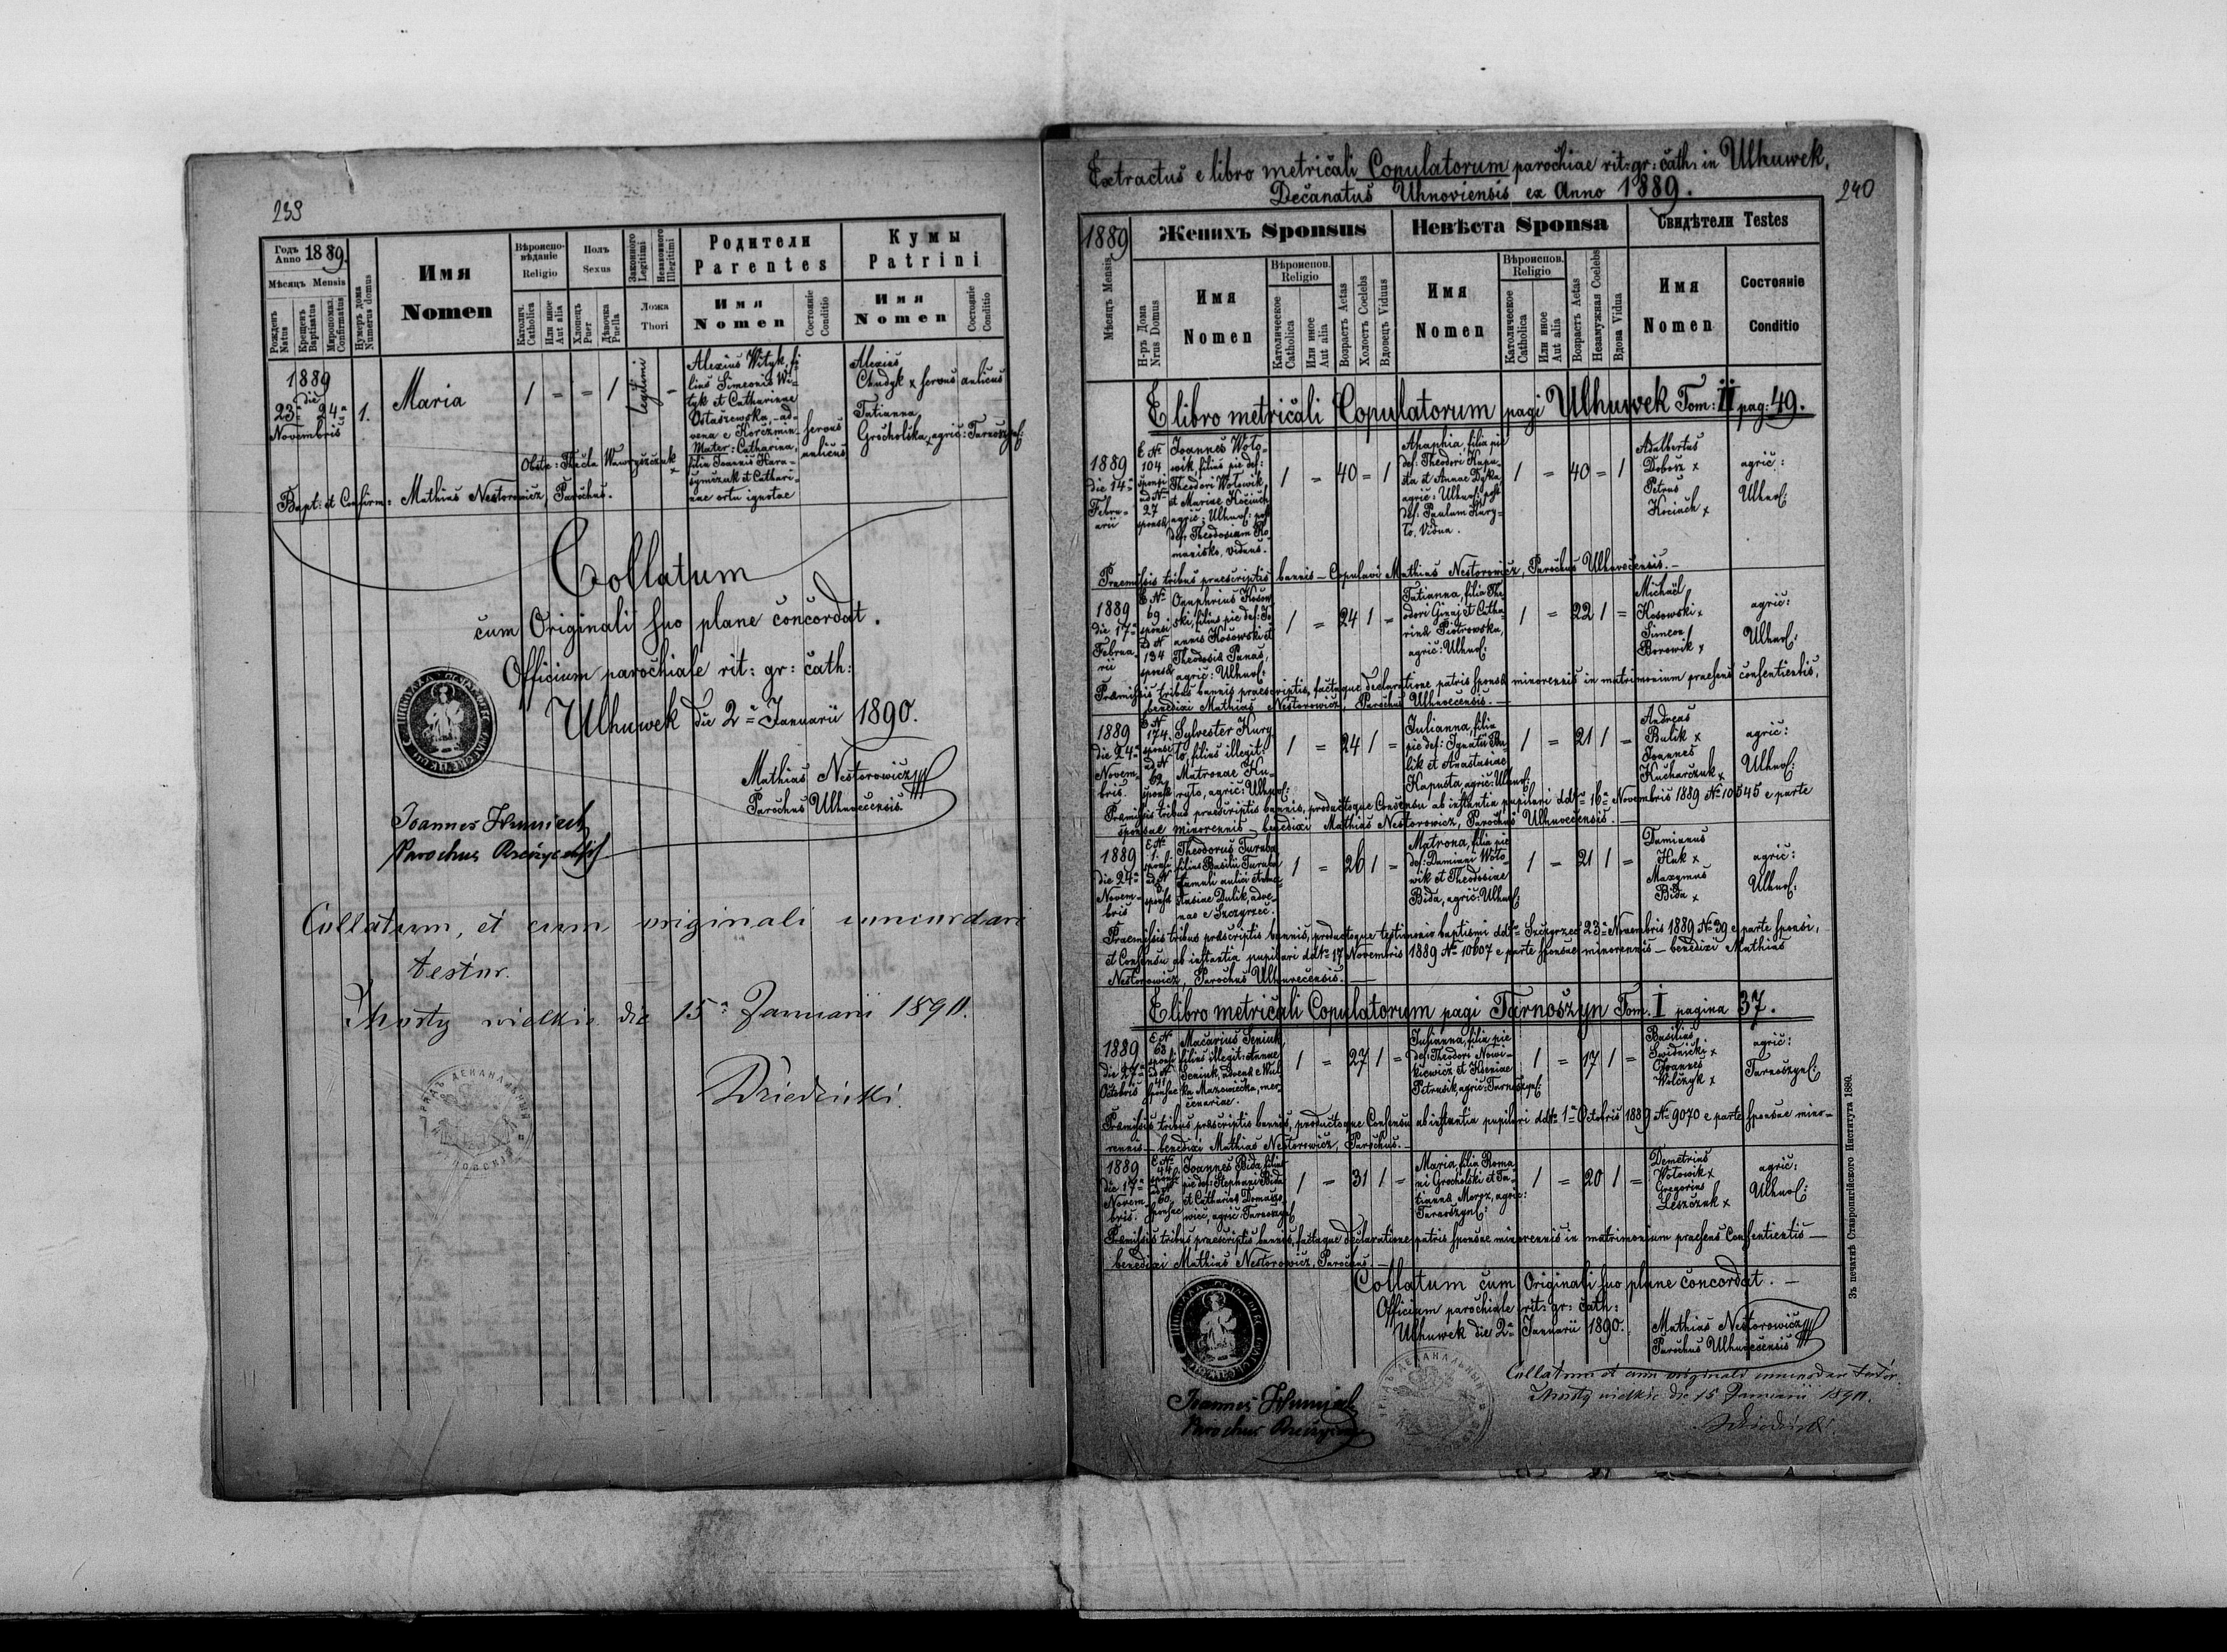 239
Годъ Anno 1889.
Мѣсяцъ Mensis
Рожденъ Natus
Крещенъ Baptisatus
Миропомаз. Confirmatus
Нумеръ дома Numerus domus
Имя
Nomen
Вѣроиспо-
вѣданіе
Religio
Католич. Catholica
Или иное Aut alia
Полъ
Sexus
Хлопецъ Puer
Дѣвочка Puella
Законного Legitimi
Незаконного Illegitimi
Ложа
Thori
Родители
Parentes
Имя
Nomen
Состояніе Conditio
Кумы
Patrini
Имя
Nomen
Состояніе Conditio
1889
die
23ª 24ª
Novembris
1.
Maria
1 = = 1 legitimi –
Alexius Wityk, fi-
lius Simeonis Wi-
tyk et Catharinae
Ostaszewska, ad-
vena e Korczmin
Mater: Catharina,
filia Joannis Hara-
symczuk et Cathari-
nae ortu ignotae
servus
aulicus
Alexius
Chudyk x servus aulicus
Tatianna
Grocholska, x agric: Tarnoszyn:
Obste: Thecla Wawryszczuk x
Bapt: et Confirm: Mathias Nestorowicz, Parochus.
Collatum
cum Originali suo plane concordat.
Officium parochiale rit: gr: cath:
Ulhuwek die 2ª Januarii 1890.
Mathias Nestorowicz
Parochus Ulhuvecensis.
Joannes
Parochus
Collatum, et cum originali concordari
testor.
Mosty wielkie die 15ª Januarii 1890.
Extractus e libro metricali Copulatorum parochiae rit: gr: cath: in Ulhuwek,
Decanatus Uhnoviensis ex Anno 1889.
240
1889
Мѣсяцъ Mensis
Женихъ Sponsus
Н-ръ Дома Nrus Domus
Имя
Nomen
Вѣроиспов.
Religio
Католическое Catholica
Или иное Aut alia
Возрастъ Aetas
Холостъ Coelebs
Вдовецъ Viduus
Невѣста Sponsa
Имя
Nomen
Вѣроиспов.
Religio
Католическое Catholica
Или иное Aut alia
Возрастъ Aetas
Незамужная Coelebs
Вдова Vidua
Свидѣтели Testes
Имя
Nomen
Состояніе
Conditio
E libro metricali Copulatorum pagi Ulhuwek Tom: II pag: 49.
1889
die 14ª
Febru-
arii
E Nº
104
sponsi
ad N
27
sponsae
Joannes Woto-
wik, filius pie def:
Theodori Wotowik
et Mariae Kociuch
agric: Ulhuv: post
def: Theodosiam Ro-
maniska, viduus.
1 = 40 = 1
Ahaphia, filia pie
def: Theodori Kapu-
sta et Annae Dyka
agric: Ulhuv: post
def: Paulum Kury-
to, Vidua.
1 = 40 = 1
Adalbertus
Dobosz x
Petrus
Kociuch x
agric:
Ulhuv:
Praemissis tribus praescriptis bannis – Copulavi Mathias Nestorowicz, Parochus Ulhuvecensis. –
1889
die 17ª
Februa-
rii
E Nº
69
sponsi
ad N
134
sponsae
Onuphrius Kosow-
ski, filius pie def: Jo-
annis Kosowski et
Theodosia Panas,
agric: Ulhuv:
1 = 24 1 =
Tatianna, filia The-
odori Ginaj et Catha-
rina Piotrowska,
agric: Ulhuv:
1 = 22 1 =
Michaël
Kosowski x
Simeon
Borowik x
agric:
Ulhuv:
Praemissis tribus bannis praescriptis, factaque declaratione patris sponsae minorennis in matrimonium praesens consentientis,
benedixi Mathias Nestorowicz, Parochus Ulhuvecensis. –
1889
die 24ª
Novem-
bris.
E N
174
sponsi
ad N
62
sponsae
Sylvester Kury-
to, filius illegit:
Matronae Ku-
ryto, agric: Ulhuv:
1 = 24 1 =
Julianna, filia
pie def: Ignatii Bu-
lik et Anastasiae
Kapusta, agric: Ulhuv:
1 = 21 1 =
Andreas
Bulik x
Joannes
Kucharczuk x
agric:
Ulhuv:
Praemissis tribus praescriptis bannis, productoque Consensu ab instantia pupilari ddto 16ª Novembris 1889 Nº 10545 e parte
sponsae minorennis – benedixi Mathias Nestorowicz, Parochus Ulhuvecensis. –
1889
die 24ª
Novem-
bris
E Nº
1
sponsi
ad N
sponsae
Theodorus Turuba
filius Basilii Turuba
famuli aulici et Ana-
stasiae Dulik, adve-
nae e Szczyrzec.
1 = 26 1 =
Matrona, filia pie
def: Damiani Woto-
wik et Theodosiae
Bida, agric: Ulhuv:
1 = 21 1 =
Damianus
Huk x
Maxymus
Bida x
agric:
Ulhuv:
Praemissis tribus praescriptis bannis, productoque testimonio baptismi ddto Szczyrzec 23ª Novembris 1889 Nº 39 e parte sponsi,
et Consensu ab instantia pupilari ddto 17 Novembris 1889 Nº 10607 e parte sponsae minorennis – benedixi Mathias
Nestorowicz, Parochus Ulhuvecensis. –
E libro metricali Copulatorum pagi Tarnoszyn Tom. I pagina 37.
1889
die 27ª
Octobris
E N
63
sponsi
ad N
41
sponsae
Macarius Seniuk
filius illegit: Annae
Seniuk, advenae e Wul-
ka Mazowiecka, mer-
cenariae.
1 = 27 1 =
Julianna, filia pie
def: Theodori Nowi-
kiewicz et Xseniae
Petrusik, agric: Tarnoszyn:
1 = 17 1 =
Basilius
Swidnicki x
Joannes
Wolczyk x
agric:
Tarnoszyn:
Praemissis tribus praescriptis bannis, productoque Consensu ab instantia pupilari ddto 1ª Octobris 1889 Nº 9070 e parte sponsae mino-
rennis – benedixi Mathias Nestorowicz, Parochus. –
1889
die 17ª
Novem-
bris.
E Nº
44
sponsi
ad N
60
sponsae
Joannes Bida, filius
pie def: Stephani Bida
et Catharina Tomasze-
wicz, agric: Tarnoszyn:
1 – 31 1 –
Maria, filia Roma-
ni Grocholski et Ta-
tianna Moroz, agric:
Tarnoszyn:
1 = 20 1 =
Demetrius
Wotowik x
Gregorius
Leszczuk x
agric:
Ulhuv:
Praemissis tribus praescriptis bannis, factaque declaratione patris sponsae minorennis in matrimonium praesens consentientis –
benedixi Mathias Nestorowicz, Parochus. –
Collatum cum Originali suo plane concordat. –
Officium parochiale rit: gr: cath:
Ulhuwek die 2ª Januarii 1890.
Mathias Nestorowicz
Parochus Ulhuvecensis
Collatum et cum originali concordare testor.
Mosty wielkie die 15 Januarii 1890.
Joannes
Parochus
Зъ печатнѣ Ставропигійского Института 1880.